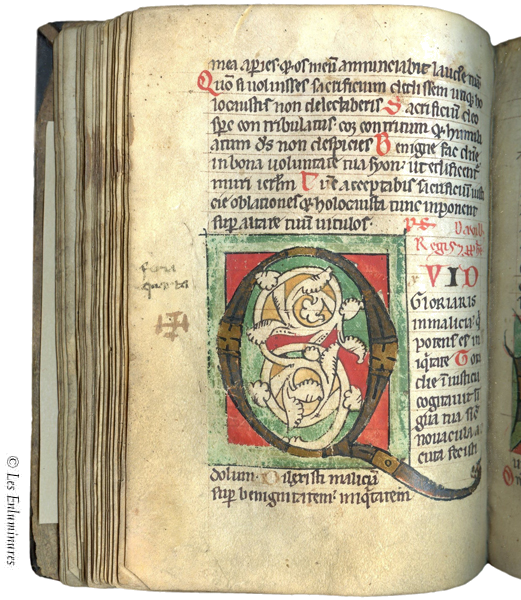 mea aperies· & os meu͞ annunciabit laude͞ tua͞
Qu͞o si voluisses sacrificium dedissem utiq; ho
locaustis non delectaberis Sacrificiu͞ deo
sp͞c contribulatus· cor contritum & humili
atum d͞s non despicies Benigne fac d͞ne
in bona voluntate tua syon· ut edificent͞
muri ierl͞m Tu͞c acceptabis sacrificiu͞ iusti
cie oblationes & holocausta tunc inponent
sup͞ altare tuu͞ vitulos·
ps· Davids
Regis
feria
quarta
Q
VID
GLORIARIS
in malicia q͞
potens es in
iq͞tate Tota
die i͞iusticia͞
cogitavit li͞
gua tua sic͞
novacula a
cuta fecisti
dolum· Dilexisti malicia͞
sup͞ benignitatem· iniq͞tatem
© Les Enluminures